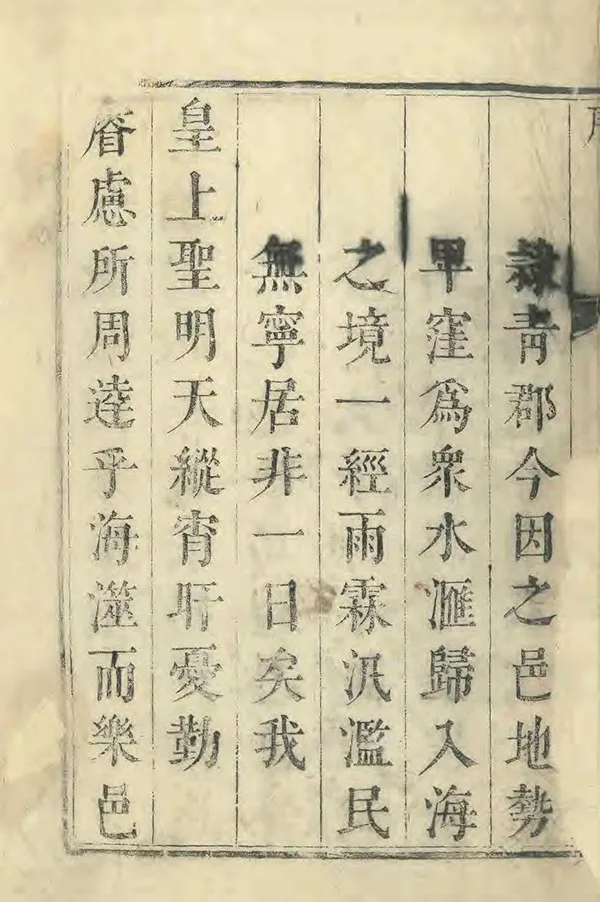 隷青郡今因之邑地勢
卑窪爲衆水滙歸入海
之境一經雨霖汎濫民
無寧居非一日矣我
皇上聖明天縱宵旰憂勤
睿慮所周逹乎海澨而樂邑